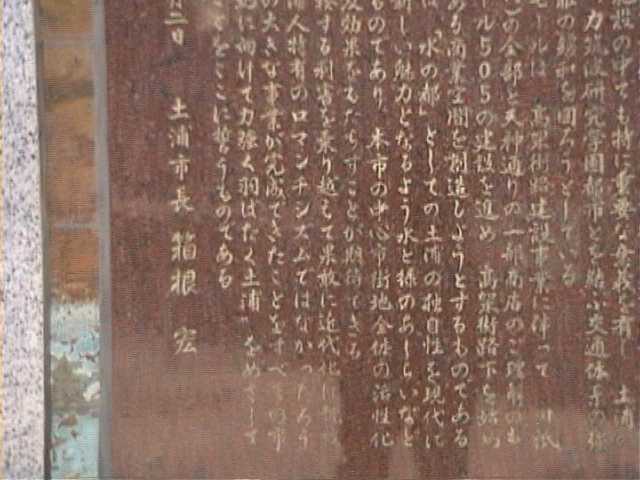 に特に重要な意義を有し 土浦
力筑波研究学園都市とを結ぶ交通体系の強
の緩和を図ろうとしている
モールは 高架街路建設事業に伴って 川
の全部と天神通りの一部商店のご理解のも
ール505の建設を進め 高架街路下と結
ある商業空間を創造しようとするものである
「水の都」としての土浦の独自性を現代に
新しい魅力となるよう水と緑のあしらいなど
ものであり、本市の中心市街地全体の活性化
及効果をもたらすことが期待できる
する利害を乗り越えて果敢に近代化に
浦人特有のロマンチシズムではなかったろう
の大きな事業が完成できたことをすべての市
に向けて力強く羽ばたく土浦 をめざして
ことをここに誓うものである
月二日
土浦市長 箱根 宏